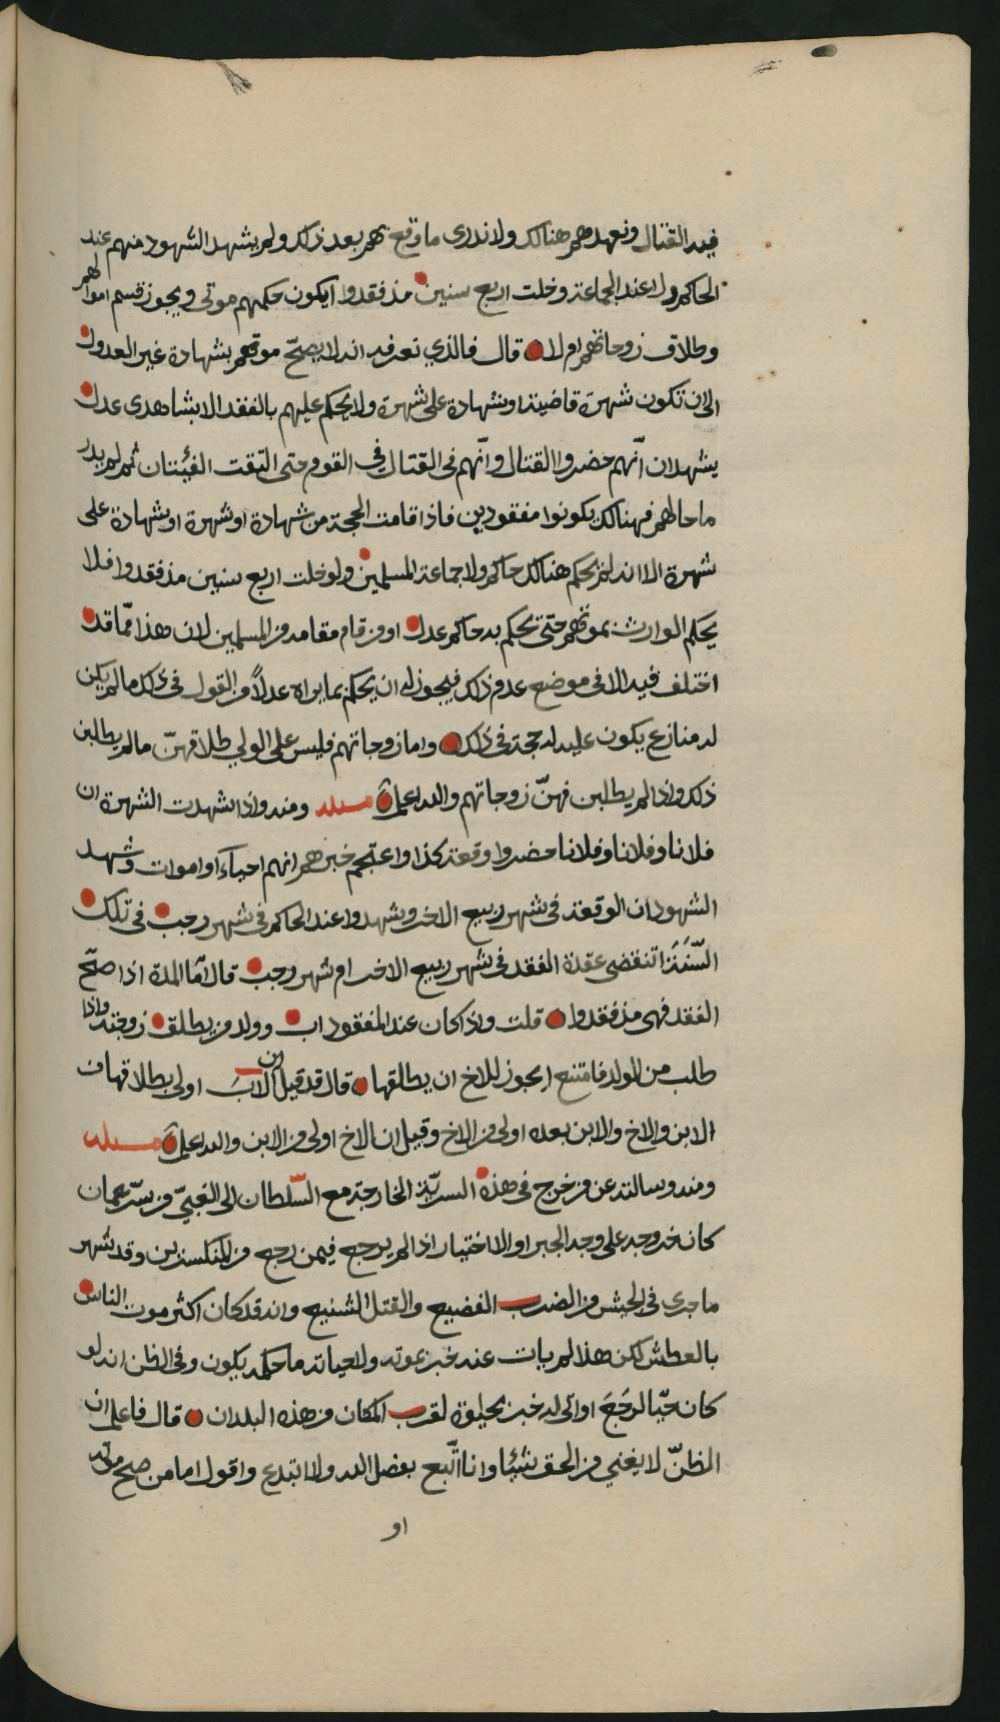 فيه القتال ونعهدهم هنالك ولا ندرى ما وقع بهم بعد ذلك ولم يشهد الشهود منهم عند
الحاكم ولا عند الجماعة وخلت اربع سنين مذ فقدوا ايكون حكمهم موتى ويجوز قسم اموالهم
وطلاق زوجاتهم ام لا قال فالذي نعرفه انه لا يصحّ موتهم بشهادة غير العدول
الا ان تكون شهرة قاضية او شهادة على شهرة ولا يحكم عليهم بالفقد الا بشاهدى عدل
يشهد ان انّهم حضروا القتال وانّهم فى القتال فى القوم حتى التقت الفئتان ثم لم يدر
ما حالهم فهنالك يكونوا مفقودين فاذا قامت الحجة من شهادة او شهرة او شهادة على
شهرة الا انه لم يحكم هنالك حاكم ولا جماعة المسلمين ولو خلت اربع سنين مذ فقدوا فلا
يحكم الوارث بموتهم حتى يحكم به حاكم عدل او من قام مقامه من المسلمين لان هذا ممّا قد
اختلف فيه الا فى موضع عدم ذلك فيجوز له ان يحكم بما يراه عدلاً من القول فى ذلك ما لم يكن
له منازع يكون عليه له حجة فى ذلك واما زوجاتهم فليس على الولي طلاقهنّ ما لم يطلبن
ذلك واذا لم يطلبن فهنّ زوجاتهم والله اعلم مسئله ومنه واذا شهدت الشهرة ان
فلانا وفلانا وفلانا حضروا وقعة كذا واعتجم خبرهم انهم احياء او اموات وشهد
الشهود ان الوقعة فى شهر ربيع الاخر وشهدوا عند الحاكم فى شهر رجب فى تلك
السَّنَة اتنقضى عقدة الفقد فى شهر ربيع الاخر ام شهر رجب قال اما المدة اذا صحّ
الفقد فهى مذ فقدوا قلت واذا كان عند المفقود اب وولد من يطلق زوجته واذا
طلب من الولد فامتنع ايجوز للاخ ان يطالقها قال قد قيل ان الاب اولى بطلاقها من
الابن والاخ والابن بعده اولى من الاخ وقيل ان الاخ اولى من الابن والله اعلم مسئله
ومنه وسالته عن من خرج فى هذه السريّة الخارجة مع السّلطان الى الغبيّ من سرّ عمان
كان خروجه على وجه الجبر او الاختيار اذا لم يرجع فيمن رجع من المنكسرين وقد شهر
ما جرى فى الجيش من الضرب الفضيع والقتل الشنيع وانه قد كان اكثر موت الناس
بالعطش لكن هذا لم يات عنه خبر بموته ولا حياته ما حكمه يكون وفى الظن انه لو
كان حيّا لرَجَعَ او اتى له خبر بحيلوة لقرب المكان من هذه البلدان قال فاعلم ان
الظنّ لا يغني من الحق شيئا وانا اتّبع بفضل الله ولا ابتدع واقول اما من صح موته
او